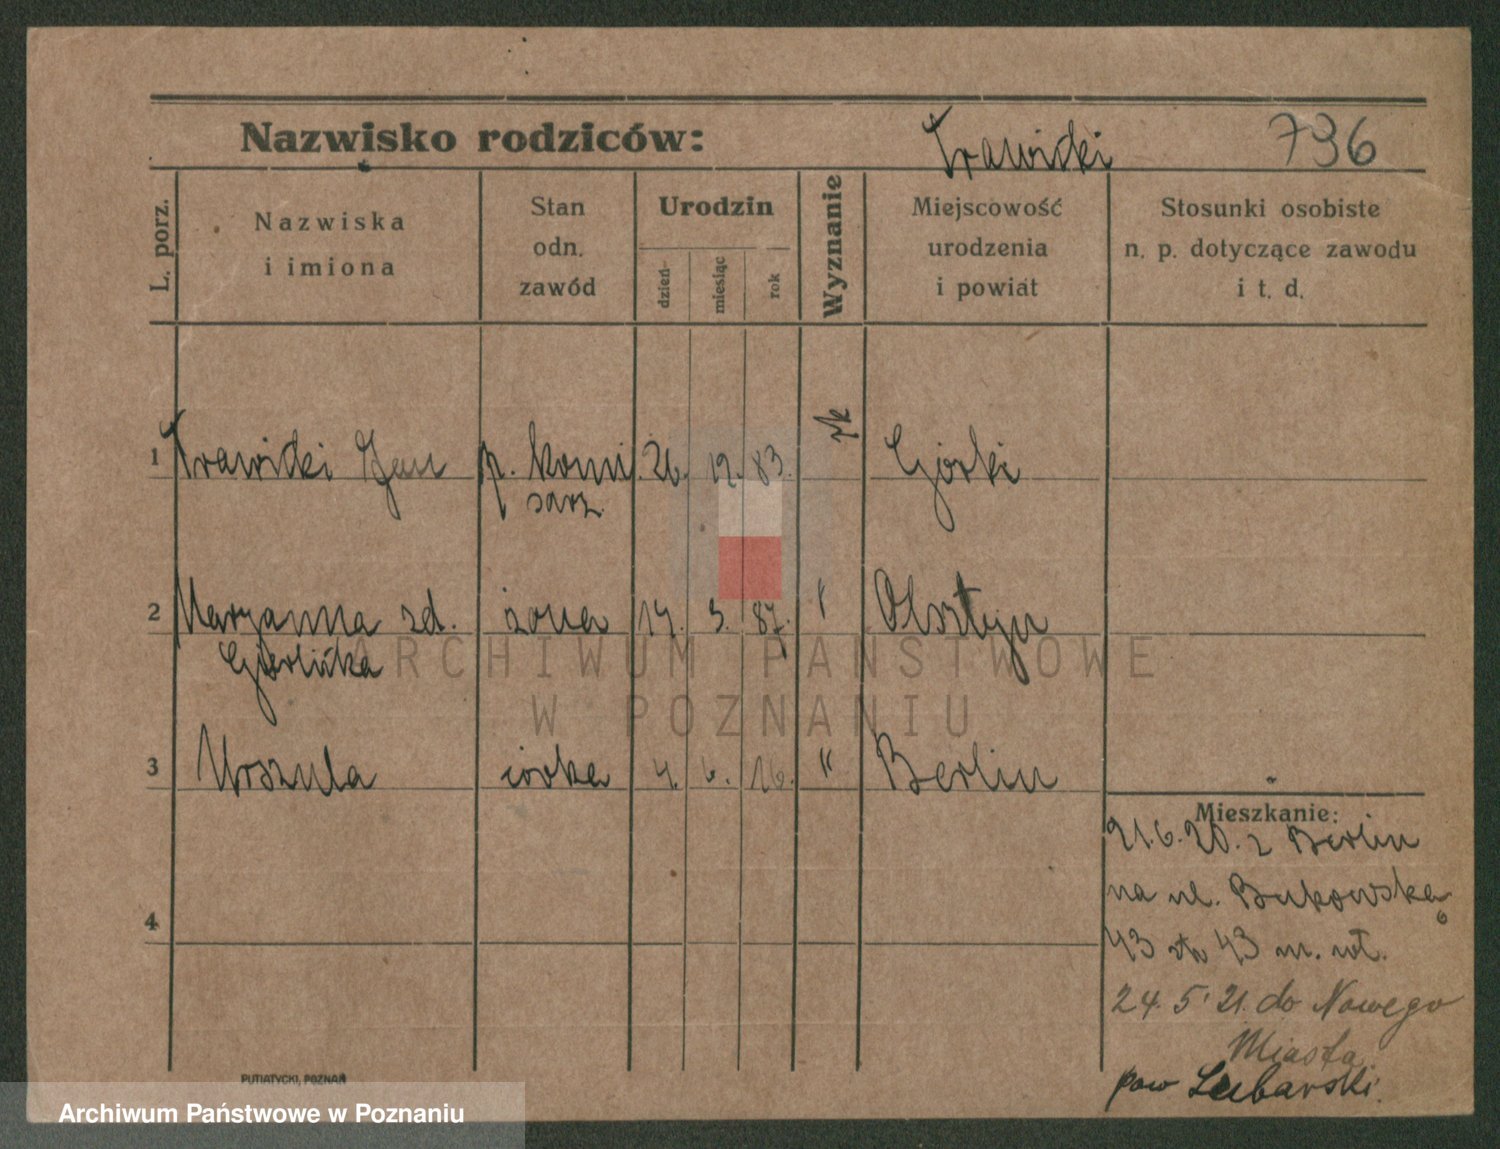 Nazwisko rodziców: Trawicki 736
L. porz.
Nazwiska i imiona
Stan odn. zawód
Urodzin
dzień
miesiąc
rok
Wyznanie
Miejscowość urodzenia i powiat
Stosunki osobiste n. p. dotyczące zawodu i t. d.
1 Trawicki Jan p. komi 26. 12. 83. rk Górki
sarz
2 Maryanna zd. żona 17. 3. 87. " Olsztyn
3 Urszula córka 4. 6. 16. " Berlin
Mieszkanie:
21.6.20. z Berlin
na ul. Bukowska
43
43 m. wł.
4
24. 5. 21. do Nowego
Miasta
pow Lubawski.
PUTIATYCKI, POZNAŃ
ARCHIWUM PAŃSTWOWE
W POZNANIU
Archiwum Państwowe w Poznaniu